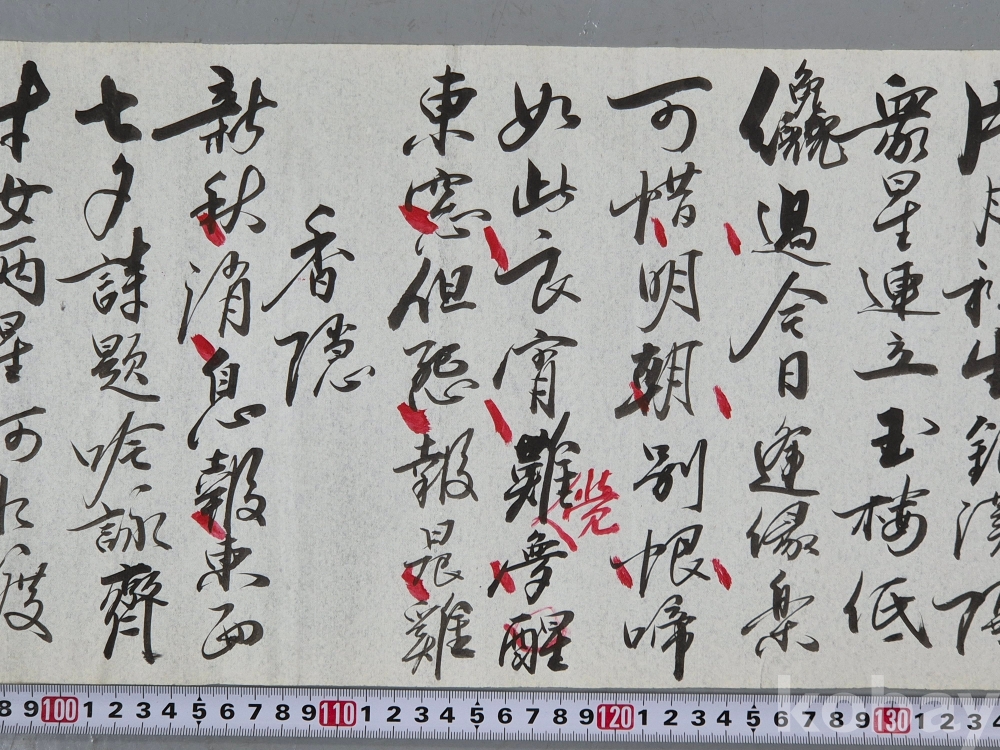 月初生銀漢
衆星連立玉楼低
儳過今日逢縁楽
可惜明朝別恨啼
如此良宵難夢醒
覺
東窓但恐報晨雞
香隠
新秋消息報東西
七夕詩題吟詠齊
女両星
8 9 100 1 2 3 4 5 6 7 8 9 110 1 2 3 4 5 6 7 8 9 120 1 2 3 4 5 6 7 8 9 130 1 2 3
kobay